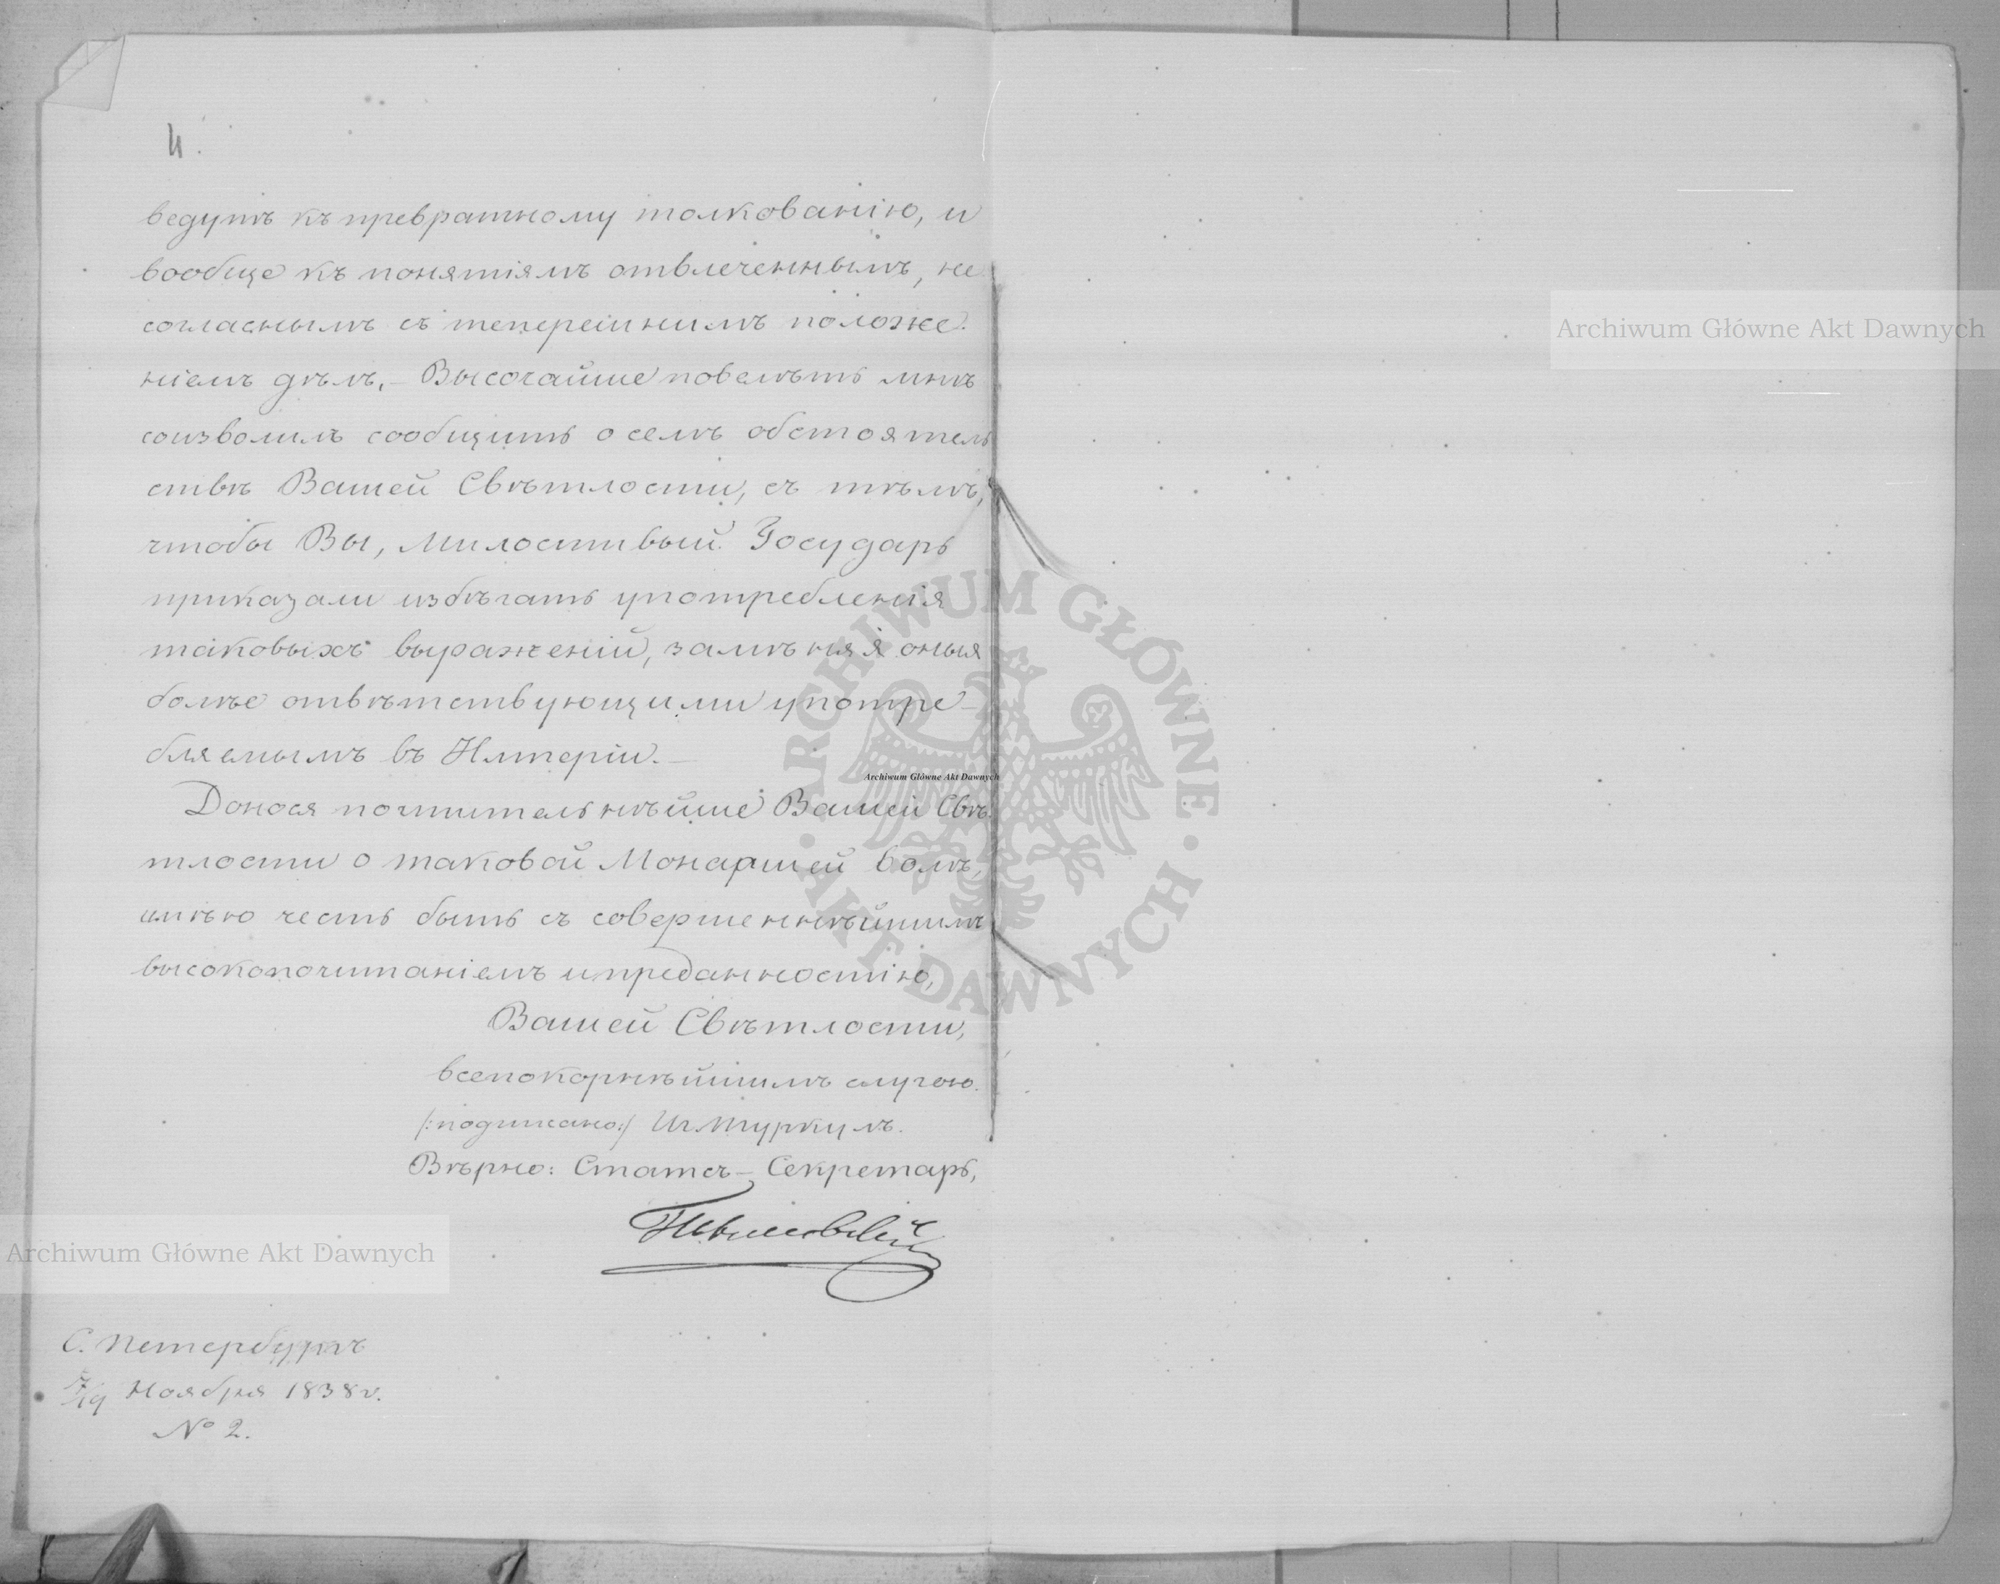 4.
ведутъ къ превратному толкованію, и
вообще къ понятіямъ отвлеченнымъ, не
согласнымъ съ теперешнимъ положе-
ніемъ дѣлъ, – Высочайше повелѣть мнѣ
соизволилъ сообщить о семъ обстоятель
ствѣ Вашей Свѣтлости, съ тѣмъ,
чтобы Вы, Милостивый Государь
приказали избѣгать употребленія
таковыхъ выраженій, замѣняя оныя
болѣе отвѣтствующими употре-
бляемымъ въ Имперіи. –
Донося почтительнѣйше Вашей Свѣ-
тлости о таковой Монаршей волѣ,
имѣю честь быть съ совершеннѣйшимъ
высокопочитаніемъ и преданностію,
Вашей Свѣтлости,
всепокорнѣйшимъ слугою.
/:подписано:/ Иг. Туркулъ.
Вѣрно: Статсъ-Секретарь,
С. Петербургъ
7/19 Ноября 1838 г.
№ 2.
Archiwum Główne Akt Dawnych
Archiwum Główne Akt Dawnych
Archiwum Główne Akt Dawnych
ARCHIWUM GŁÓWNE · AKT DAWNYCH ·